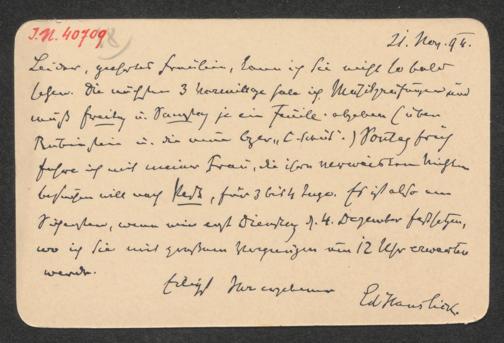 I.N. 40709
21. Nov. 94.
Leider, geehrtes Fräulein, kann ich Sie nicht so bald
sehen. Die nächsten 3 Vormittage habe ich Musikprüfungen und
muß Freitag u. Samstag je ein Feuill. abgeben (über
Rubinstein u. die neue Oper „C. Schut“.) Sontag früh
fahre ich mit meiner Frau, die ihre verwaisten Nichten
besuchen will nach Pest, für 3 bis 4 Tage. Es ist also am
Sichersten, wenn wir erst Dienstag d. 4. Dezember festsetzen,
wo ich Sie mit großem Vergnügen um 12 Uhr erwarten
werde.
Eiligst Ihr ergebener
Ed Hanslick.